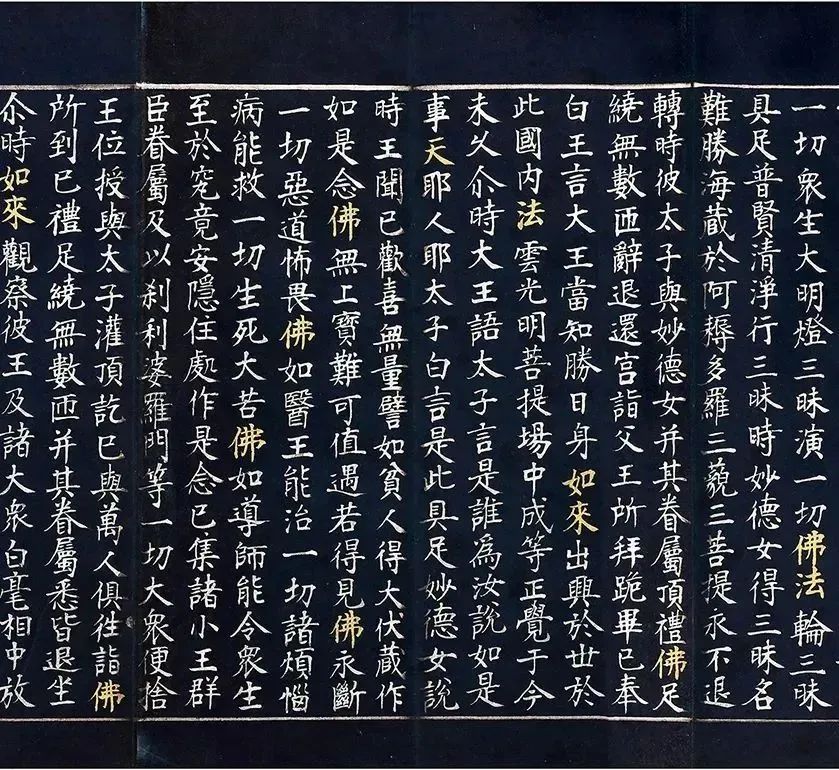 一切衆生大明燈三昧演一切佛法輪三昧
具足普賢清淨行三昧時妙德女得三昧名
難勝海藏於阿耨多羅三藐三菩提永不退
轉時彼太子與妙德女并其眷屬頂禮佛足
繞無數匝辭退還宫詣父王所拜跪畢已奉
白王言大王當知勝日身如來出興於世於
此國内法雲光明菩提場中成等正覺于今
未久尒時大王語太子言是誰為汝說如是
事天耶人耶太子白言是此具足妙德女說
時王聞已歡喜無量譬如貧人得大伏藏作
如是念佛無上寶難可值遇若得見佛永斷
一切惡道怖畏佛如醫王能治一切諸煩惱
病能救一切生死大苦佛如導師能令衆生
至於究竟安隱住處作是念已集諸小王群
臣眷屬及以刹利婆羅門等一切大衆便捨
王位授與太子灌頂訖已與萬人俱往詣佛
所到已禮足繞無數匝并其眷屬悉皆退坐
尒時如來觀察彼王及諸大衆白毫相中放